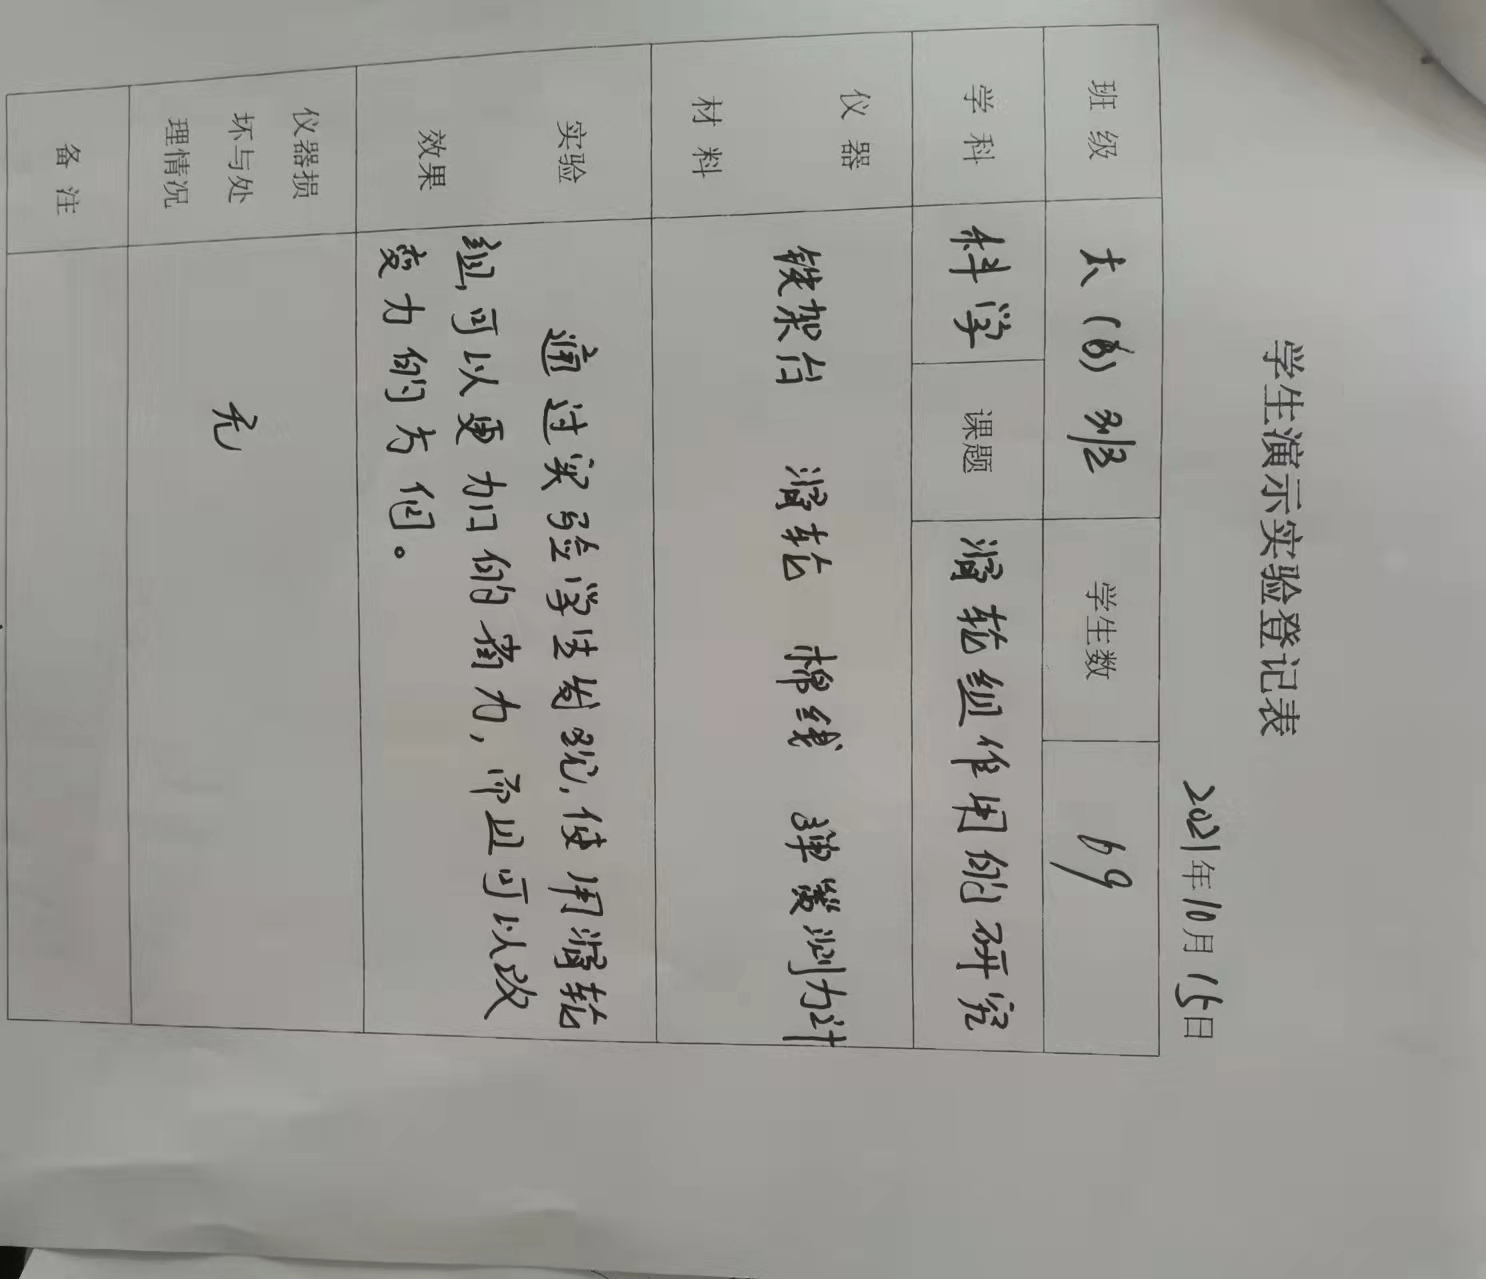 学生演示实验登记表
2021年10月15日
班级 六(6)班 学生数 69
学科 科学 课题 滑轮组作用的研究
仪器
材料
铁架台 滑轮 棉线 弹簧测力计
实验
效果
通过实验学生发现,使用滑轮
组,可以更加的省力,而且可以改
变力的方向。
仪器损
坏与处
理情况
无
备注